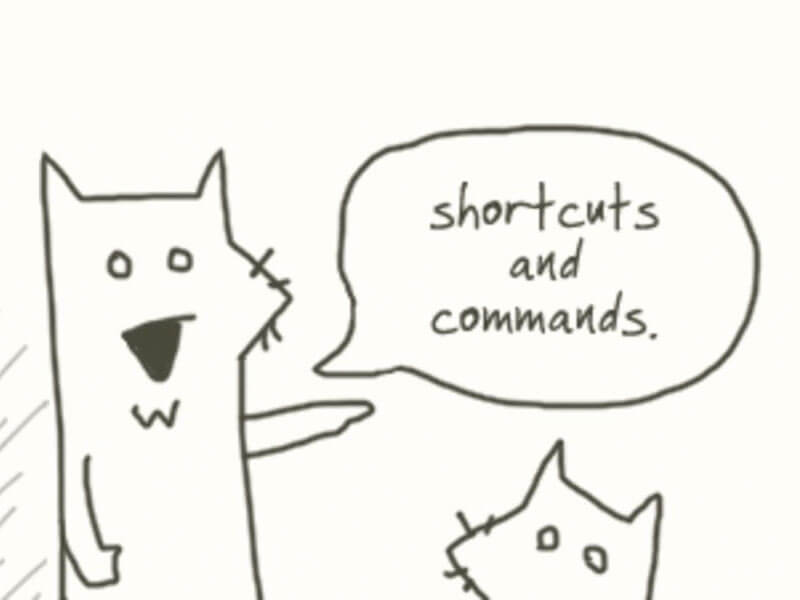 shortcuts
and
commands.